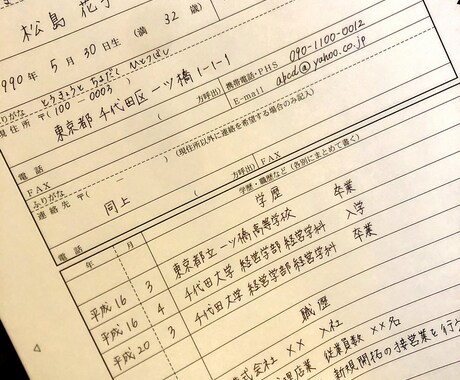 松島 花
990 年 5 月 30 日生 (満 32 歳)
ふりがな とうきょうと ちよだく ひとつばし
現住所 〒( 100 - 0003 )
東京都 千代田区 一ツ橋 1-1-1
( 方呼出)
携帯電話・PHS 090-1100-0012
E-mail abcd@yahoo.co.jp
電話
FAX
ふりがな
連絡先 〒( - ) (現住所以外に連絡を希望する場合のみ記入)
同上
( 方呼出) FAX
電話
年 月 学歴・職歴など(各別にまとめて書く)
学歴
平成16 3 東京都立一ツ橋高等学校 卒業
平成16 4 千代田大学 経営学部 経営学科 入学
平成20 3 千代田大学 経営学部 経営学科 卒業
職歴
式会社 ×× 入社
店業 従業員数 ××名
新規開拓の接営業を行